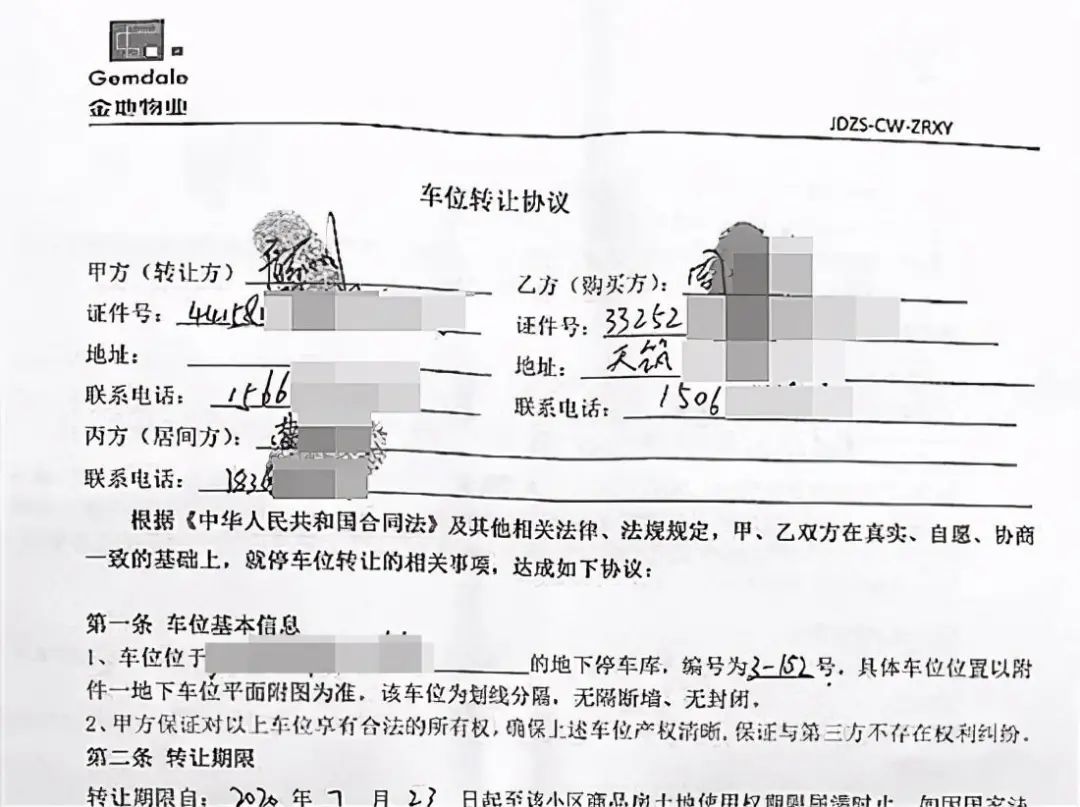 Gemdale
金地物业
JDZS-CW-ZRXY
车位转让协议
甲方（转让方）
乙方（购买方）：
证件号：441581
证件号：33252
地址：
地址：天筑
联系电话：1566
联系电话：1506
丙方（居间方）：
联系电话：1836
根据《中华人民共和国合同法》及其他相关法律、法规规定，甲、乙双方在真实、自愿、协商
一致的基础上，就停车位转让的相关事项，达成如下协议：
第一条 车位基本信息
1、车位位于 的地下停车库，编号为3-152号，具体车位位置以附
件一地下车位平面附图为准，该车位为划线分隔，无隔断墙、无封闭。
2、甲方保证对以上车位享有合法的所有权，确保上述车位产权清晰，保证与第三方不存在权利纠纷。
第二条 转让期限
转让期限自：2020年7月23日起至该小区商品房土地使用权期限届满时止，如因国家法